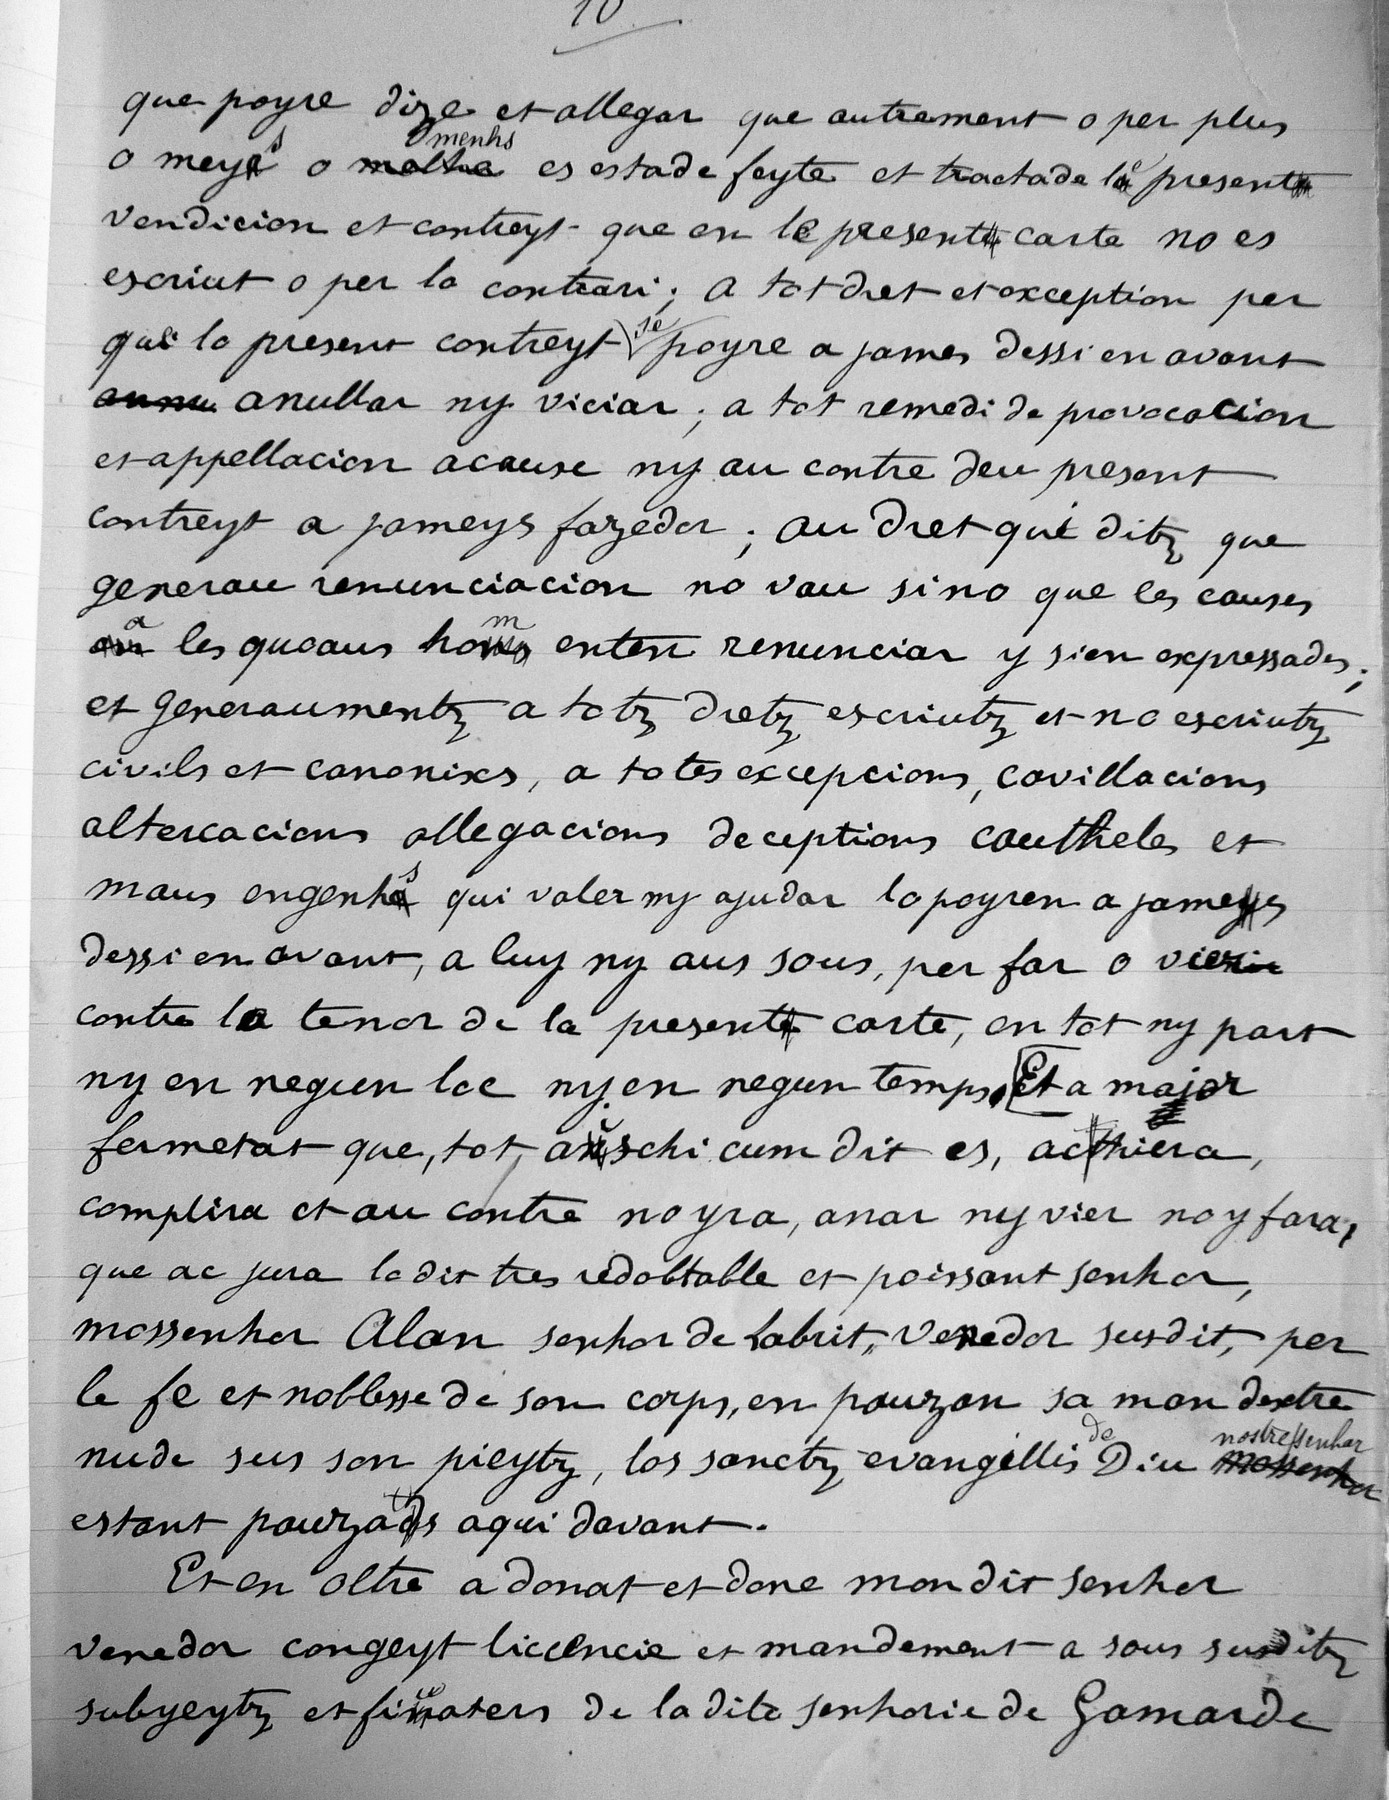 10
que poyre dize et allegar que autrement o per plus
o meys o menhs es estade feyte et tractade le present
vendicion et contreyt que en le present carte no es
escriut o per lo contrari ; a tot dret et exception per
qui lo present contreyt se poyre a james dessi en avant
anullar ny viciar ; a tot remedi de provocacion
et appellacion a cause ny au contre deu present
contreyt a jameys fazedor ; au dret qui ditz que
generau renunciacion no vau sino que les causes
a les quoaus hom enten renunciar y sien expressades ;
et generaumentz a totz dretz escriutz et no escriutz
civils et canonixs, a totes excepcions, cavillacions
altercacions allegacions deceptions cautheles et
maus engenhs qui valer ny ajudar lo poyren a jameys
dessi en avant, a luy ny aus sous, per far o vier
contre la tenor de la present carte, en tot ny part
ny en negun loc ny en negun temps. Et a major
fermetat que, tot, auschi cum dit es, ac thiera,
complira et au contre no yra, anar ny vier no y fara,
que ac jura lo dit tres redobtable et poissant senhor,
mossenhor Alan senhor de Labrit, venedor susdit, per
le fe et noblesse de son corps, en pauzan sa man dextre
nude sus son pieytz, los sanctz evangellis de Diu nostre senhor
estant pauzads aqui davant.
Et en oltre a donat et done mon dit senhor
venedor congeyt liccencie et mandement a sous susditz
subyeytz et fiuaters de la dite senhorie de Gamarde